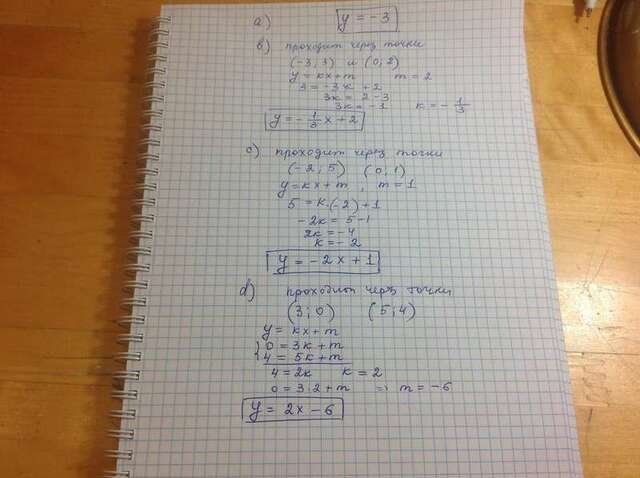 a) y = -3
b) проходит через точки
(-3; 3) и (0; 2)
y = kx+m m = 2
3 = -3k + 2
3k = 2-3
3k = -1 k = -1/3
y = -1/3 x + 2
c) проходит через точки
(-2; 5) (0; 1)
y = kx+m, m = 1
5 = k·(-2)+1
-2k = 5-1
2k = -4
k = -2
y = -2x+1
d) проходит через точки
(3; 0) (5; 4)
y = kx+m
0 = 3k+m
4 = 5k+m
4 = 2k k = 2
0 = 3·2+m => m = -6
y = 2x-6